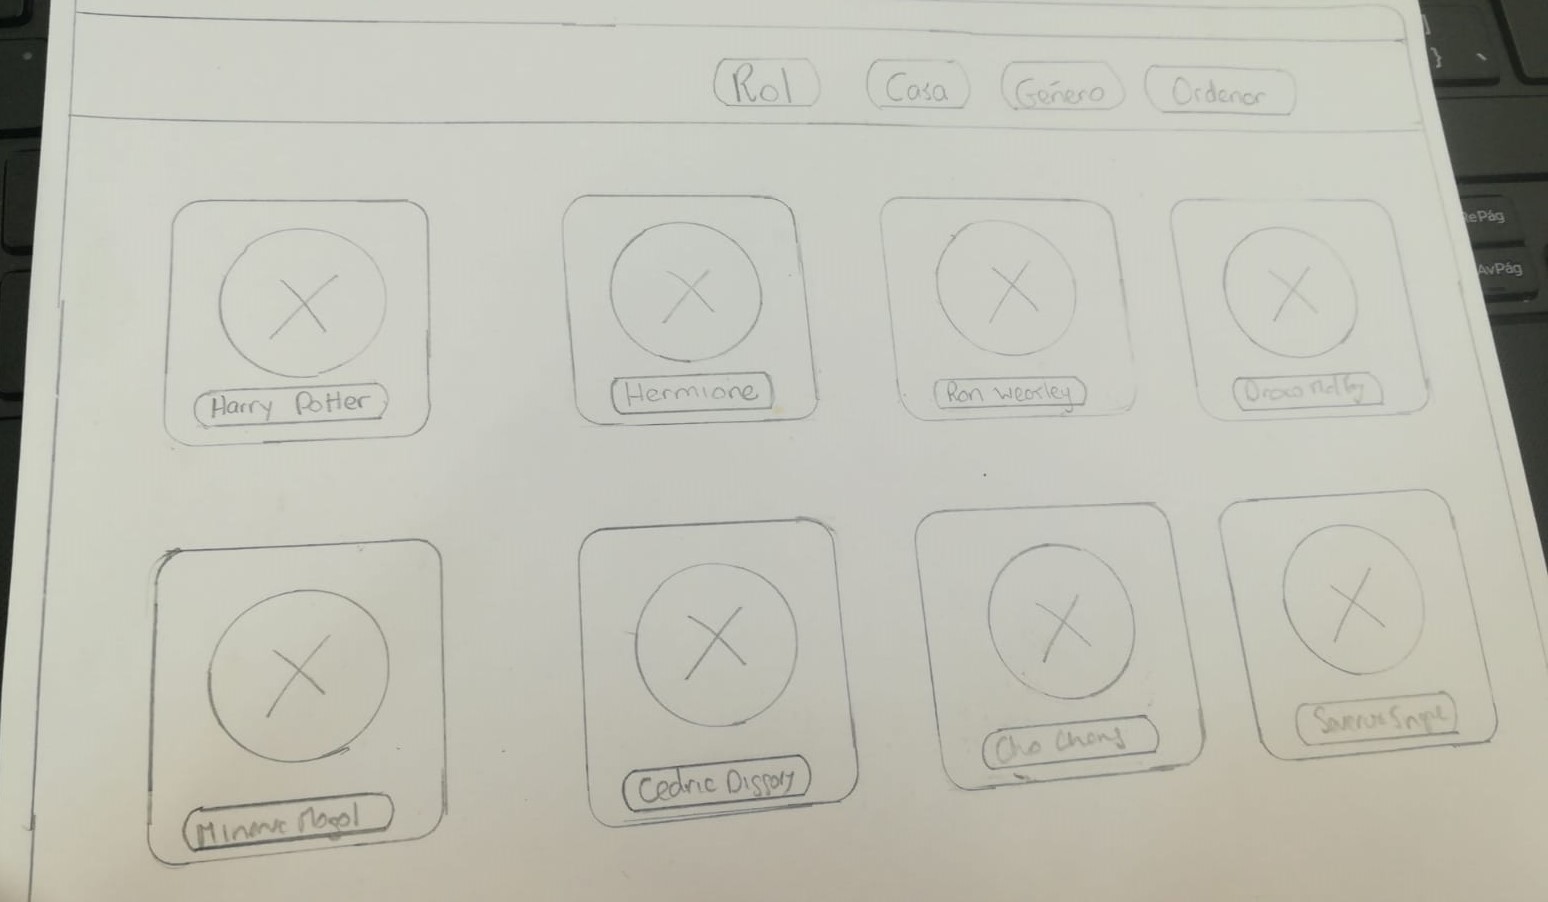 Rol Casa Género Ordenar
Harry Potter Hermione Ron weasley Draco Malfoy
Minerva Cedric Diggory Cho Chang Severus Snape
RePág
AvPág